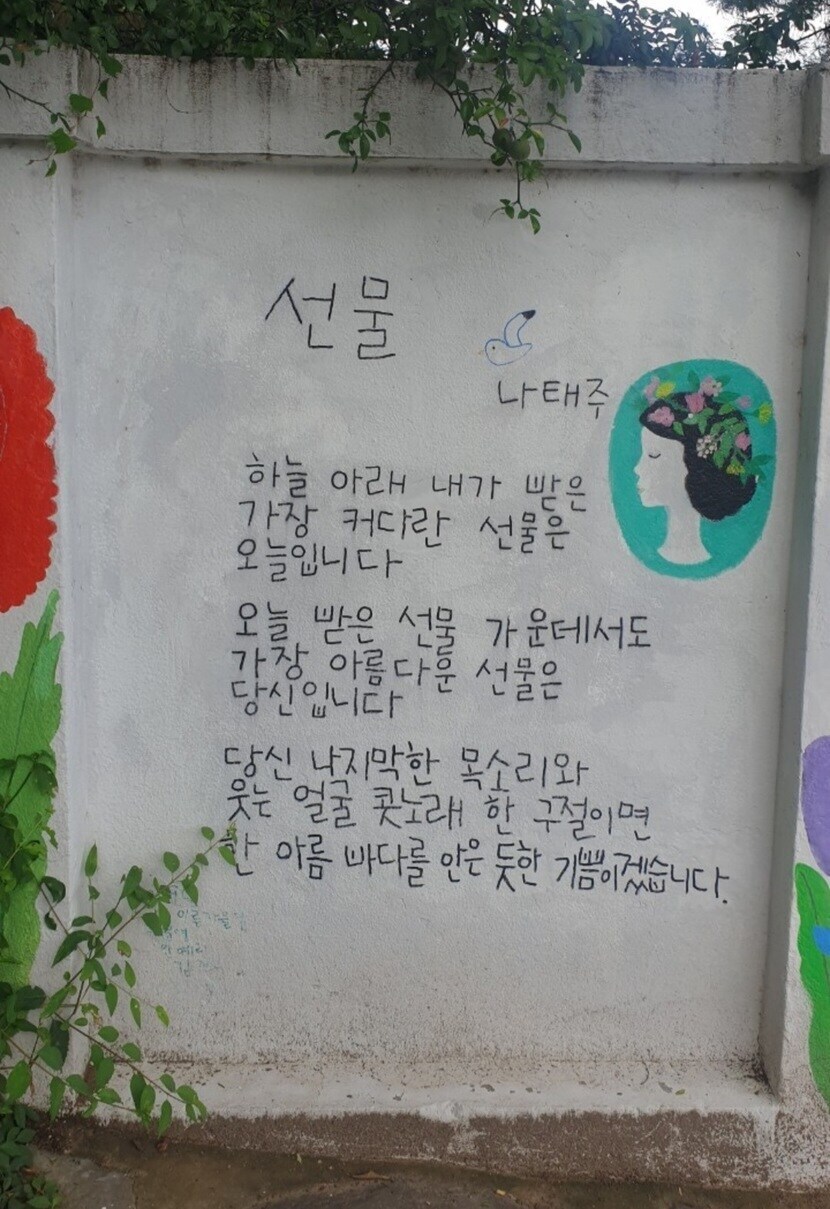 선물
나태주
하늘 아래 내가 받은
가장 커다란 선물은
오늘입니다
오늘 받은 선물 가운데서도
가장 아름다운 선물은
당신입니다
당신 나지막한 목소리와
웃는 얼굴 콧노래 한 구절이면
한 아름 바다를 안은 듯한 기쁨이겠습니다.